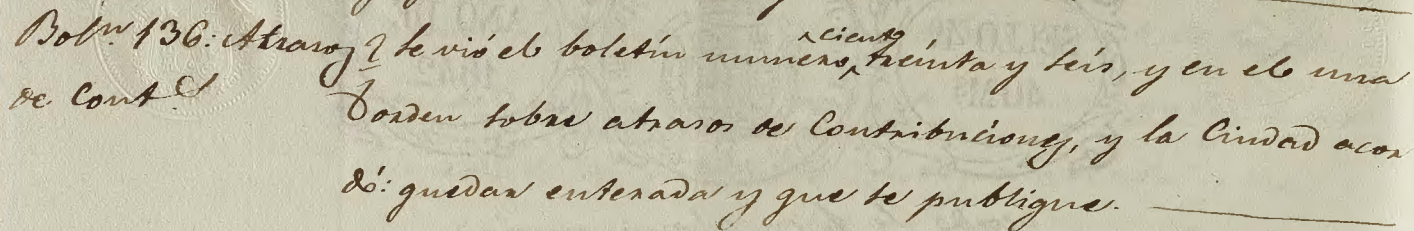 Bolⁿ. 136: Atrasos
de Contˢ
Se vió el boletin numero ciento treinta y seis, y en el una
orden sobre atrasos de Contribuciones, y la Ciudad acor
dó: quedar enterada y que se publique.